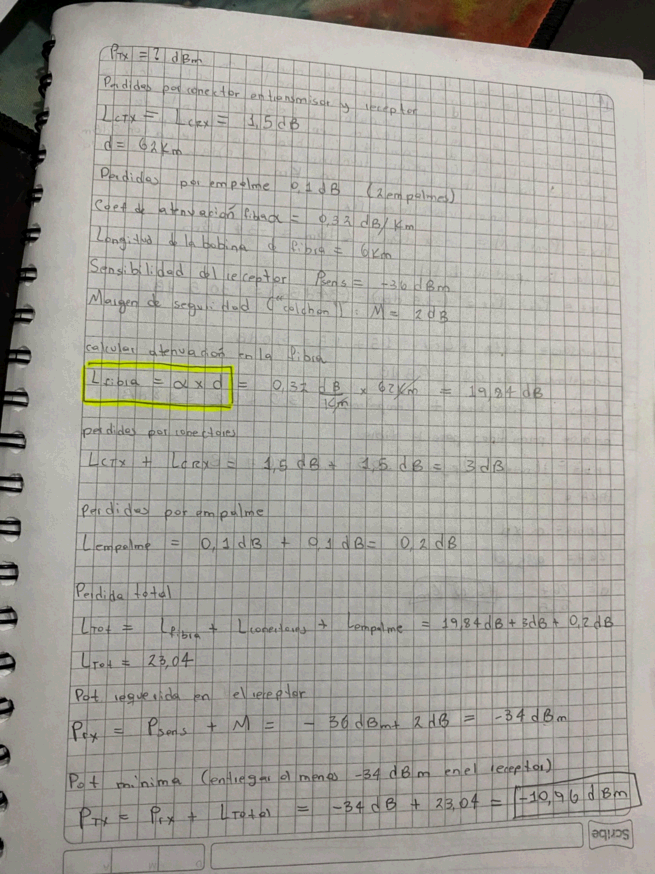 PTx = ? dBm
Perdidas por conector en transmisor y receptor
LCTX = LCRX = 1,5 dB
d = 62 Km
Perdidas por empalme 0,1 dB (2 empalmes)
Coef de atenuación fibra α = 0,32 dB/Km
Longitud de la bobina d fibra = 6 Km
Sensibilidad del receptor Psens = -36 dBm
Margen de seguridad ("colchon") : M = 2 dB
calcular atenuación en la fibra
Lfibra = α x d = 0,32 dB/Km x 62 Km = 19,84 dB
perdidas por conectores
LCTX + LCRX = 1,5 dB + 1,5 dB = 3 dB
Perdidas por empalme
Lempalme = 0,1 dB + 0,1 dB = 0,2 dB
Perdida total
LTot = Lfibra + Lconectores + Lempalme = 19,84 dB + 3 dB + 0,2 dB
LTot = 23,04
Pot requerida en el receptor
Prx = Psens + M = - 36 dBm + 2 dB = -34 dBm
Pot minima (entregar al menos -34 dBm en el receptor)
PTX = Prx + LTotal = -34 dB + 23,04 = -10,96 dBm
Scribe